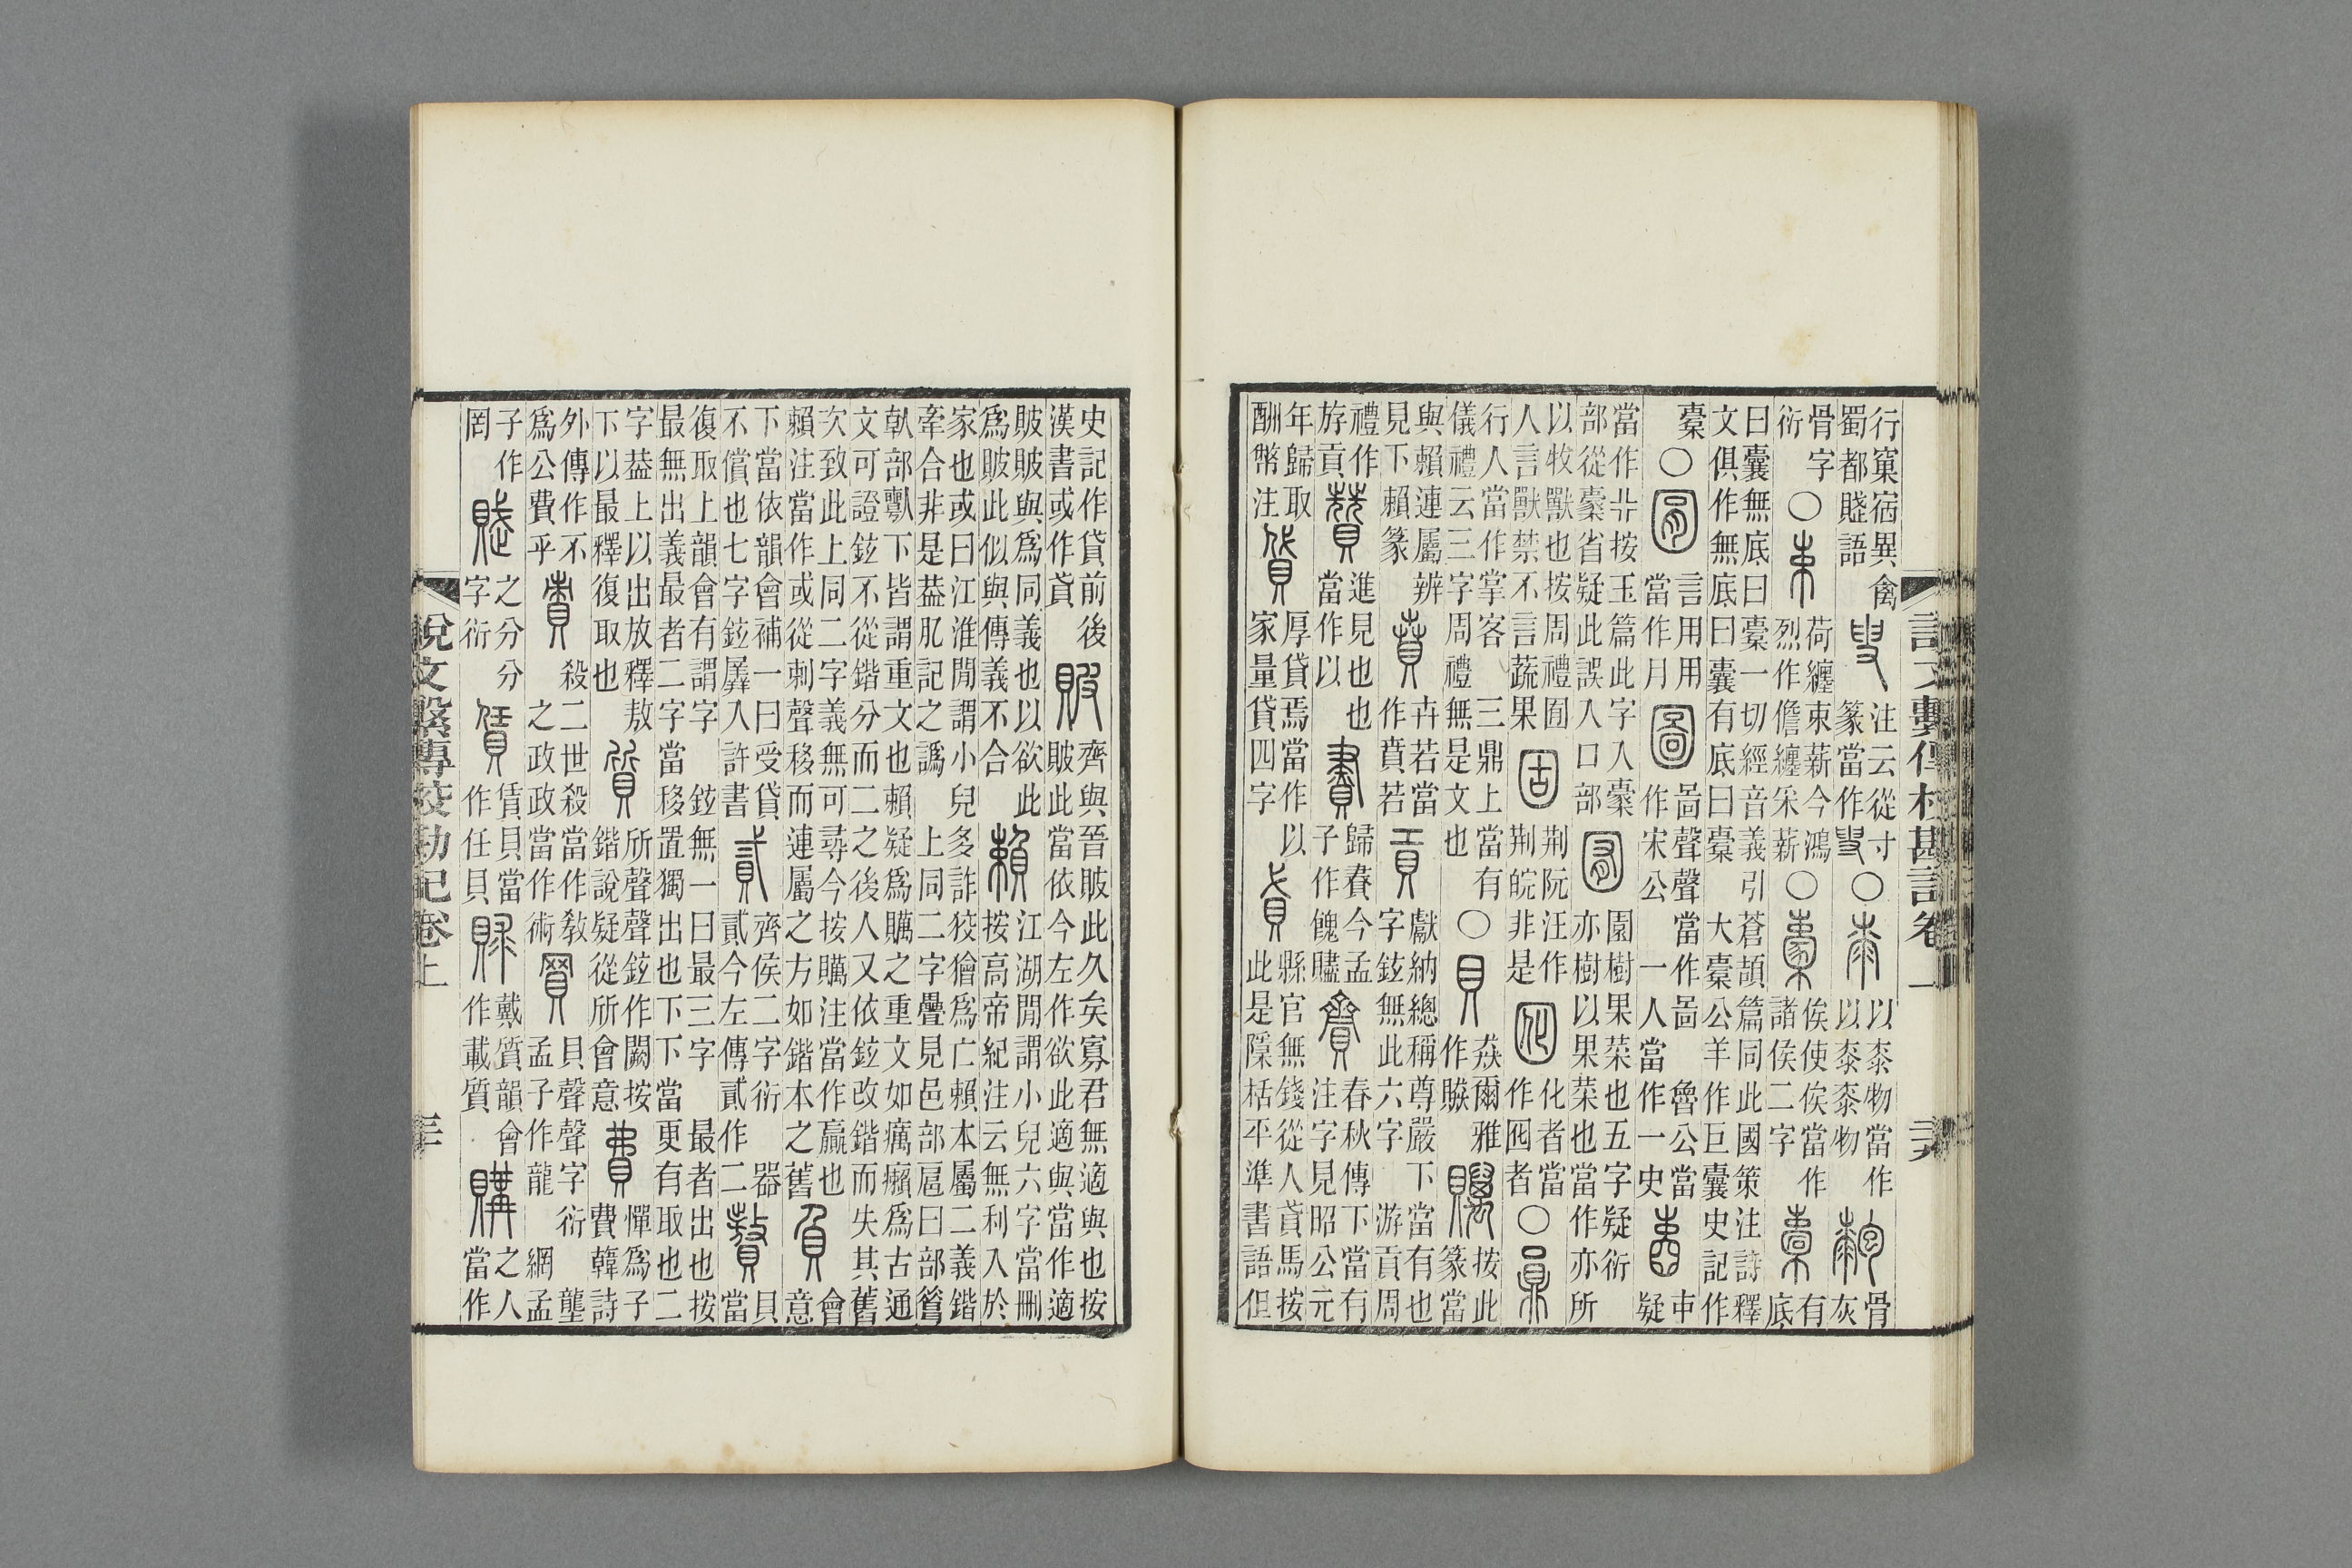 行窠宿異禽蜀都賤語叟注云從寸篆當作叟○桼以桼物當作以桼桼物䵢骨灰
骨字衍○束荷纏束薪今鴻烈作儋纏采薪○橐侯使侯當作諸侯二字橐有底
曰囊無底曰橐一切經音義引蒼頡篇同此國策注詩釋文俱作無底曰囊有底曰橐大橐公羊作巨囊史記作
橐○圓言用用當作月圖啚聲聲當作啚魯公當作宋公一人當作一史疑
當作按玉篇此字入橐部從橐省疑此誤入口部囿園樹果菜也五字疑衍亦樹以果菜也當作亦所
以牧獸也按周禮囿人言獸禁不言蔬果固荆阮汪作荆皖非是囮化者當作囮者○員
行人當作掌客三鼎上當有儀禮云三字周禮無是文也○貝猋爾雅作贆按此篆當
與賴連屬辨見下賴篆賁卉若當作賁若貢獻納總稱尊嚴下當有也字鉉無此六字游貢周
禮作斿貢贊進見也也當作以賮歸賮今孟子作餽贐齎春秋傳下當有注字見昭公元
年歸取酬幣注貸厚貸焉當作以家量貸四字貣縣官無錢從人貣馬按此是隱栝平準書語但
說文繫傳校勘記卷上
二九
史記作貸前後漢書或作貣貱齊與晉貱此久矣寡君無適與也按貱此當依今左作欲此適與當作適
貱貱與爲同義也以欲此爲貱此似與傳義不合賴江湖閒謂小兒六字當刪按高帝紀注云無利入於
家也或曰江淮閒謂小兒多詐狡獪爲亡賴本屬二義鍇牽合非是葢肊記之譌上同二字疊見邑部扈曰部
倝部下皆謂重文也賴疑爲贎之重文如癘癩爲古通文可證鉉不從鍇分而二之後人又依鉉改鍇而失其舊
次致此上同二字義無可尋今按贎注當作贏也賴注當作或從剌聲移而連屬之方如鍇本之舊負會意
下當依韻會補一曰受貸不償也七字鉉羼入許書貳齊侯二字衍器貳今左傳貳作二贅貝當
復取上韻會有謂字鉉無一曰最三字最者出也按最無出義最者二字當移置獨出也下下當更有取也二
字葢上以出放釋敖下以最釋復取也質所聲聲鉉作闕按鍇說疑從所會意費憚爲子費韓詩
外傳作不爲公費乎責殺二世殺當作教之政政當作術賈貝聲聲字衍孟子作龍壟網孟
子作罔賤之分分字衍賃賃貝當作任貝賕戴質韻會作載質購之人當作
說文繫傳校勘記卷上
三十